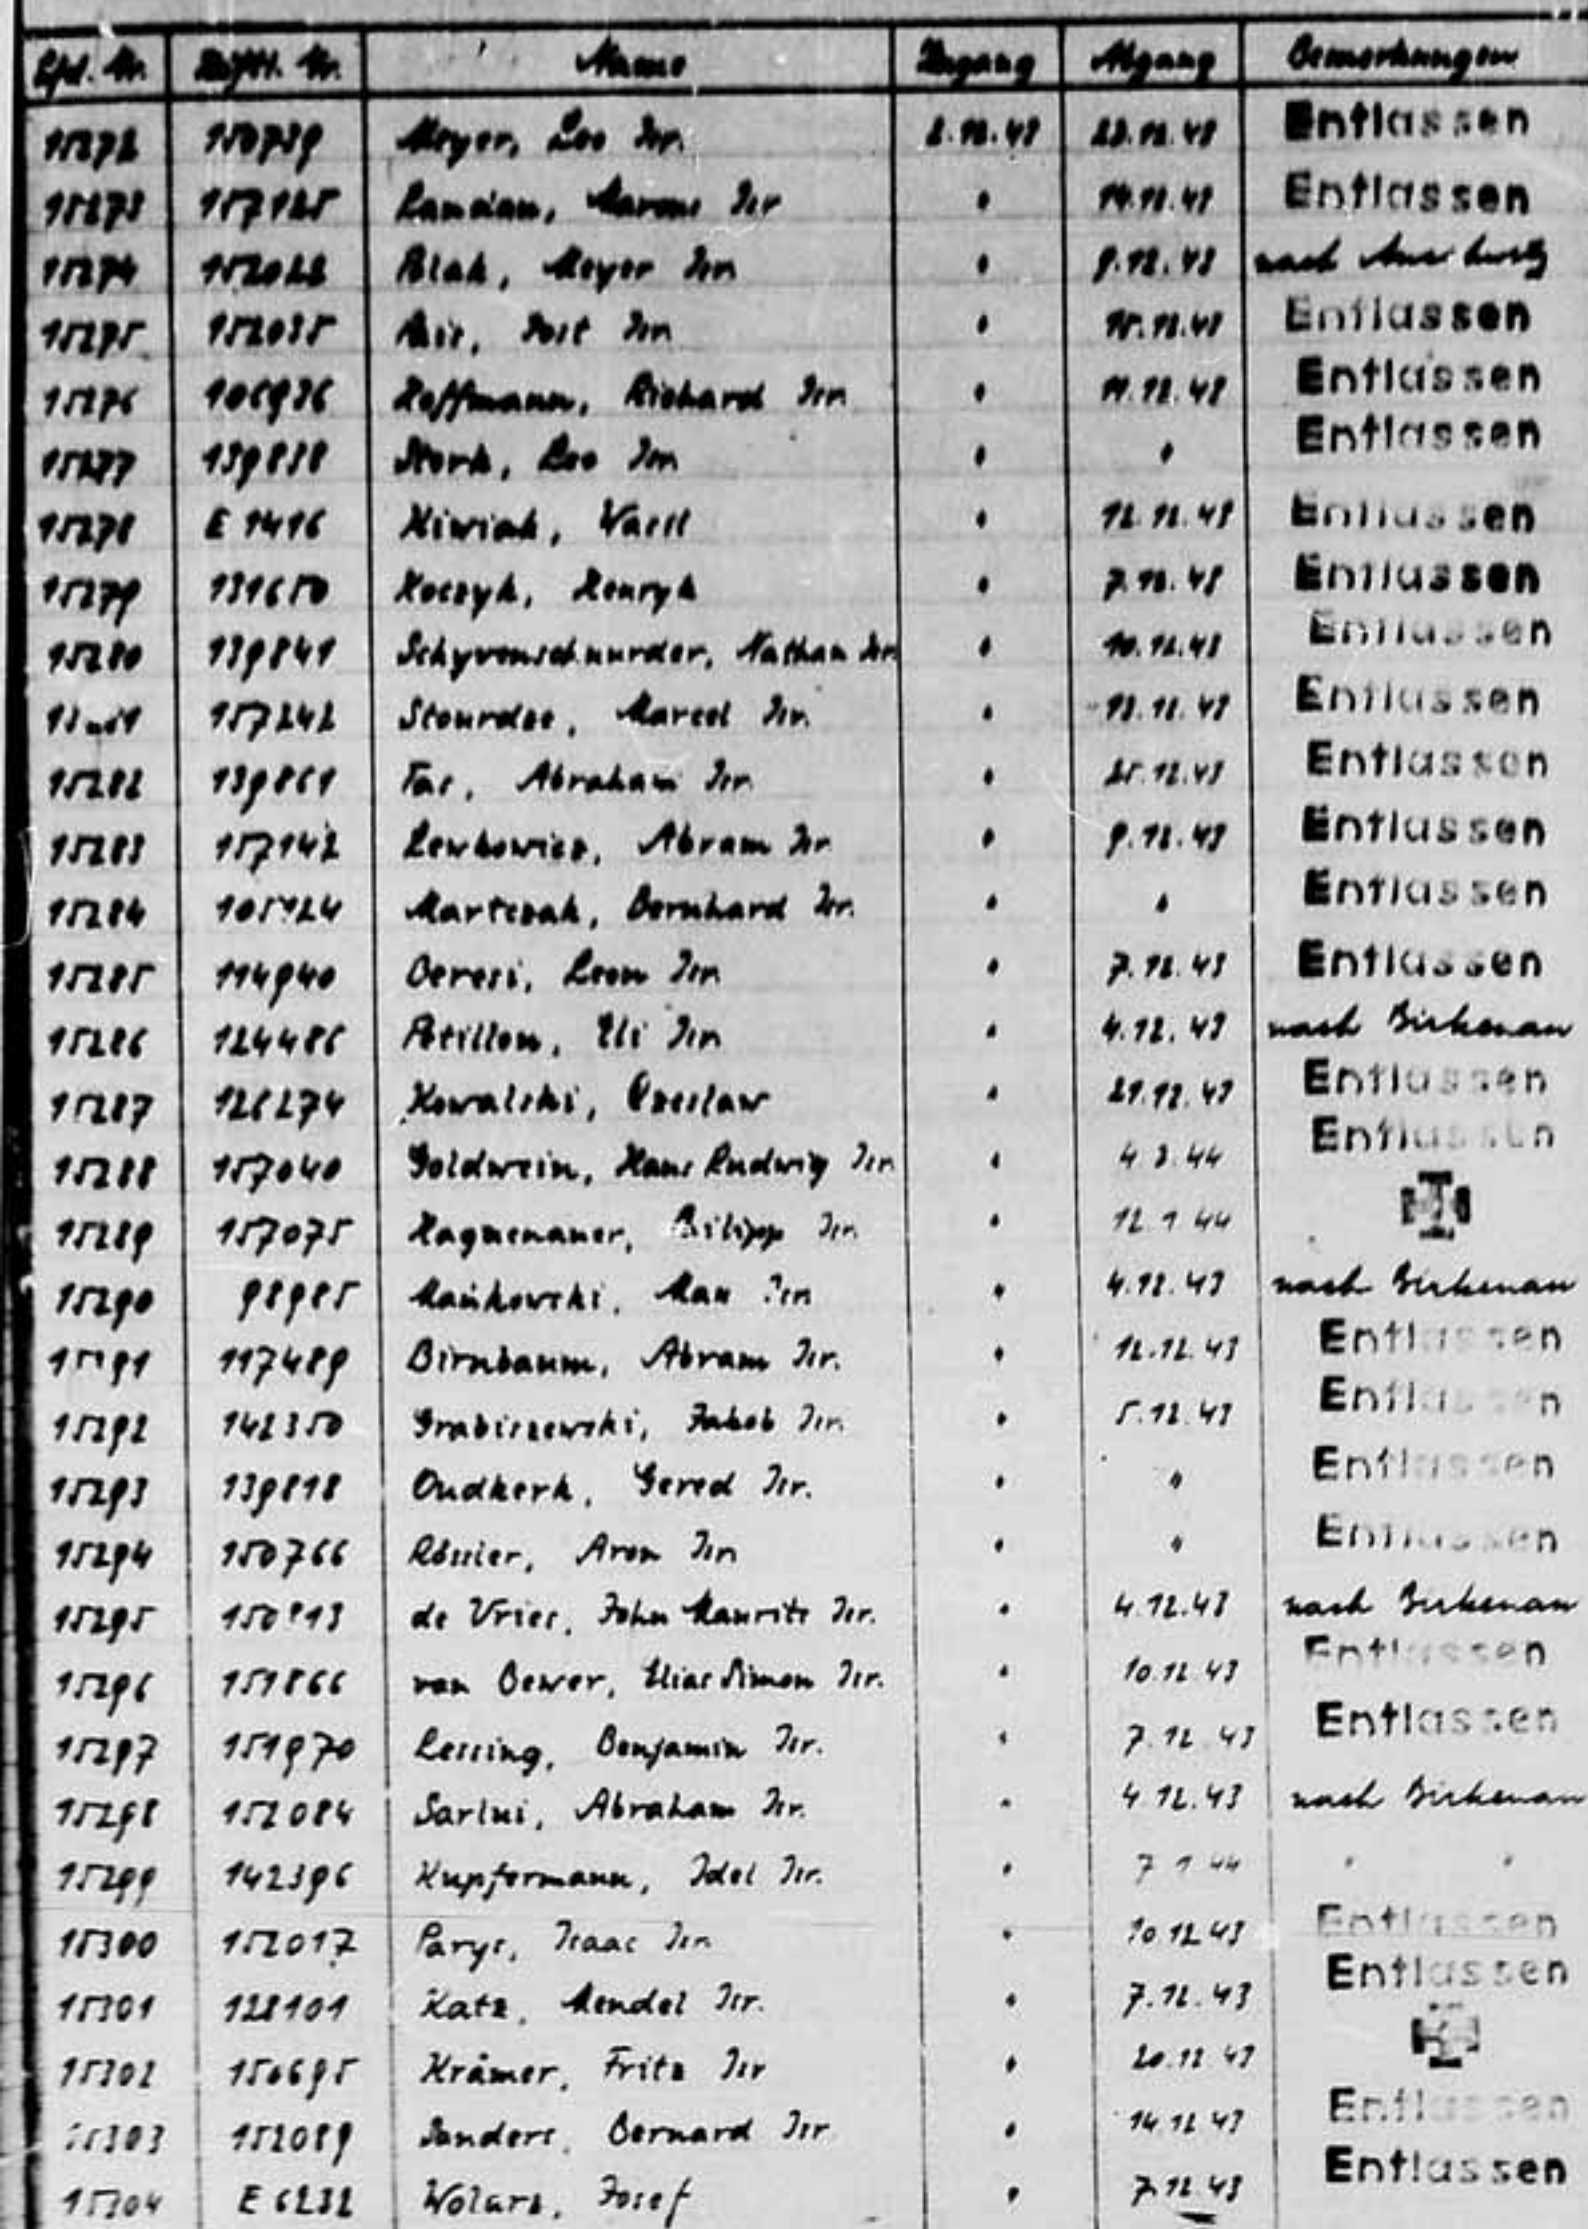 Lfd. Nr. Häftl. Nr. Name Zugang Abgang Bemerkungen
15272 150739 Meyer, Leo Isr. 2.12.43 23.12.43 Entlassen
15273 157125 Landau, Isr " 14.12.43 Entlassen
15274 152022 Meyer Isr. " 9.12.43 nach
15275 152035 Isr. " Entlassen
15276 106936 Hoffmann, Richard Isr. " 11.12.43 Entlassen
15277 139838 Stork, Leo Isr. " " Entlassen
15278 E 1416 Hiwiak, Wasil " 12.12.43 Entlassen
15279 131650 Koczyk, Henryk " 7.12.43 Entlassen
15280 139841 Nathan Isr. " 10.12.43 Entlassen
157242 Stourdze, Marcel Isr. " 13.12.43 Entlassen
15282 139861 Tas, Abraham Isr. " 25.12.43 Entlassen
15283 157142 Lewkowicz, Abram Isr. " 9.12.43 Entlassen
15284 Martczak, Bernhard Isr. " " Entlassen
15285 114940 Beresi, Leon Isr. " 7.12.43 Entlassen
15286 124486 Petillon, Eli Isr. " 4.12.43 nach Birkenau
15287 126274 Kowalski, Czeslaw " 21.12.43 Entlassen
15288 157040 Goldwein, Hans Ludwig Isr. " 4 3 44 Entlassen
15289 157075 Haguenauer, Philipp Isr. " 12 1 44
15290 98985 Mańkowski, Max Isr. " 4.12.43 nach Birkenau
15291 117489 Birnbaum, Abram Isr. " 12.12.43 Entlassen
15292 142350 Grabiszewski, Jakob Isr. " 5.12.43 Entlassen
15293 139818 Oudkerk, Gered Isr. " " Entlassen
15294 150766 Rössler, Aron Isr. " " Entlassen
15295 de Vries, John Maurits Isr. " 4.12.43 nach Birkenau
15296 151866 van Bewer, Elias Simon Isr. " 10.12.43 Entlassen
15297 151970 Lessing, Benjamin Isr. " 7.12.43 Entlassen
15298 152084 Sarlui, Abraham Isr. " 4.12.43 nach Birkenau
15299 142396 Kupfermann, Idel Isr. " 7 1 44 " "
15300 152017 Parys, Isaac Isr. " 10 12 43 Entlassen
15301 128101 Katz, Mendel Isr. " 7.12.43 Entlassen
15302 150695 Krämer, Fritz Isr " 20.12 43
15303 152089 Sanders, Bernard Isr " 14 12 43 Entlassen
15304 E 6232 Wolarz, Josef " 7.12 43 Entlassen